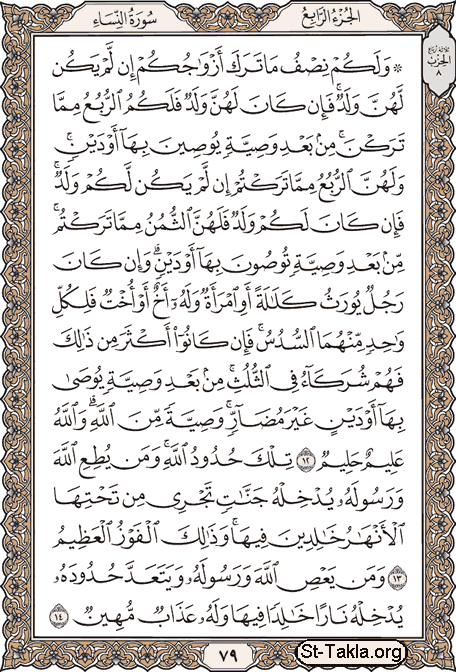 سُورَةُ النِّسَاءِ الجُزْءُ الرَّابِعُ
ثلاثة أرباع
الحزب
٨
۞ وَلَكُمْ نِصْفُ مَا تَرَكَ أَزْوَٰجُكُمْ إِن لَّمْ يَكُن
لَّهُنَّ وَلَدٌ ۚ فَإِن كَانَ لَهُنَّ وَلَدٌ فَلَكُمُ ٱلرُّبُعُ مِمَّا
تَرَكْنَ ۚ مِنۢ بَعْدِ وَصِيَّةٍ يُوصِينَ بِهَآ أَوْ دَيْنٍ ۚ
وَلَهُنَّ ٱلرُّبُعُ مِمَّا تَرَكْتُمْ إِن لَّمْ يَكُن لَّكُمْ وَلَدٌ ۚ
فَإِن كَانَ لَكُمْ وَلَدٌ فَلَهُنَّ ٱلثُّمُنُ مِمَّا تَرَكْتُم ۚ
مِّنۢ بَعْدِ وَصِيَّةٍ تُوصُونَ بِهَآ أَوْ دَيْنٍ ۗ وَإِن كَانَ
رَجُلٌ يُورَثُ كَلَٰلَةً أَوِ ٱمْرَأَةٌ وَلَهُۥٓ أَخٌ أَوْ أُخْتٌ فَلِكُلِّ
وَٰحِدٍ مِّنْهُمَا ٱلسُّدُسُ ۚ فَإِن كَانُوٓا۟ أَكْثَرَ مِن ذَٰلِكَ
فَهُمْ شُرَكَآءُ فِى ٱلثُّلُثِ ۚ مِنۢ بَعْدِ وَصِيَّةٍ يُوصَىٰ
بِهَآ أَوْ دَيْنٍ غَيْرَ مُضَآرٍّ ۚ وَصِيَّةً مِّنَ ٱللَّهِ ۗ وَٱللَّهُ
عَلِيمٌ حَلِيمٌ ١٢ تِلْكَ حُدُودُ ٱللَّهِ ۚ وَمَن يُطِعِ ٱللَّهَ
وَرَسُولَهُۥ يُدْخِلْهُ جَنَّٰتٍ تَجْرِى مِن تَحْتِهَا
ٱلْأَنْهَٰرُ خَٰلِدِينَ فِيهَا ۚ وَذَٰلِكَ ٱلْفَوْزُ ٱلْعَظِيمُ
١٣ وَمَن يَعْصِ ٱللَّهَ وَرَسُولَهُۥ وَيَتَعَدَّ حُدُودَهُۥ
يُدْخِلْهُ نَارًا خَٰلِدًا فِيهَا وَلَهُۥ عَذَابٌ مُّهِينٌ ١٤
٧٩
St-Takla.org